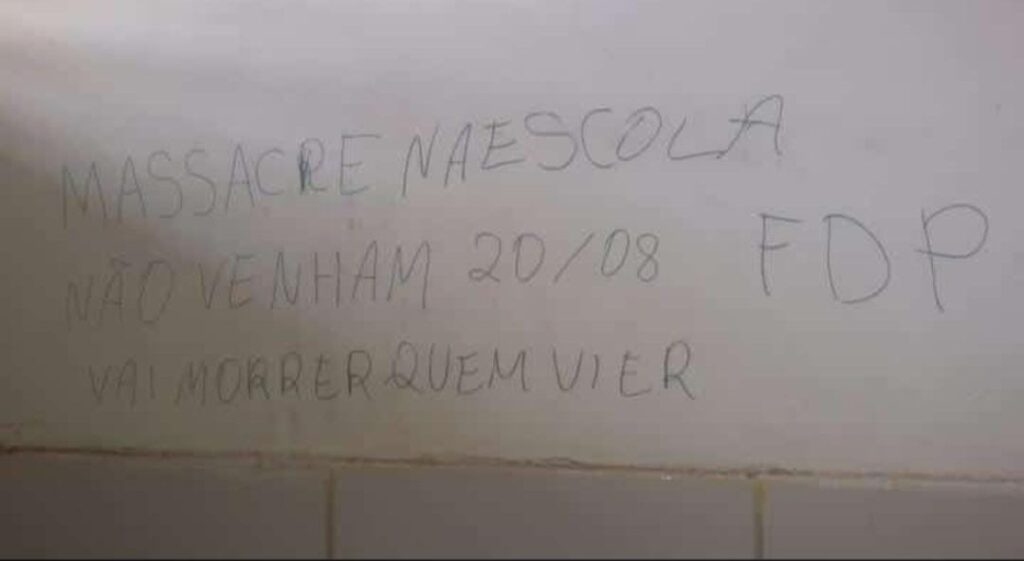 MASSACRE NA ESCOLA
NÃO VENHAM 20/08 FDP
VAI MORRER QUEM VIER